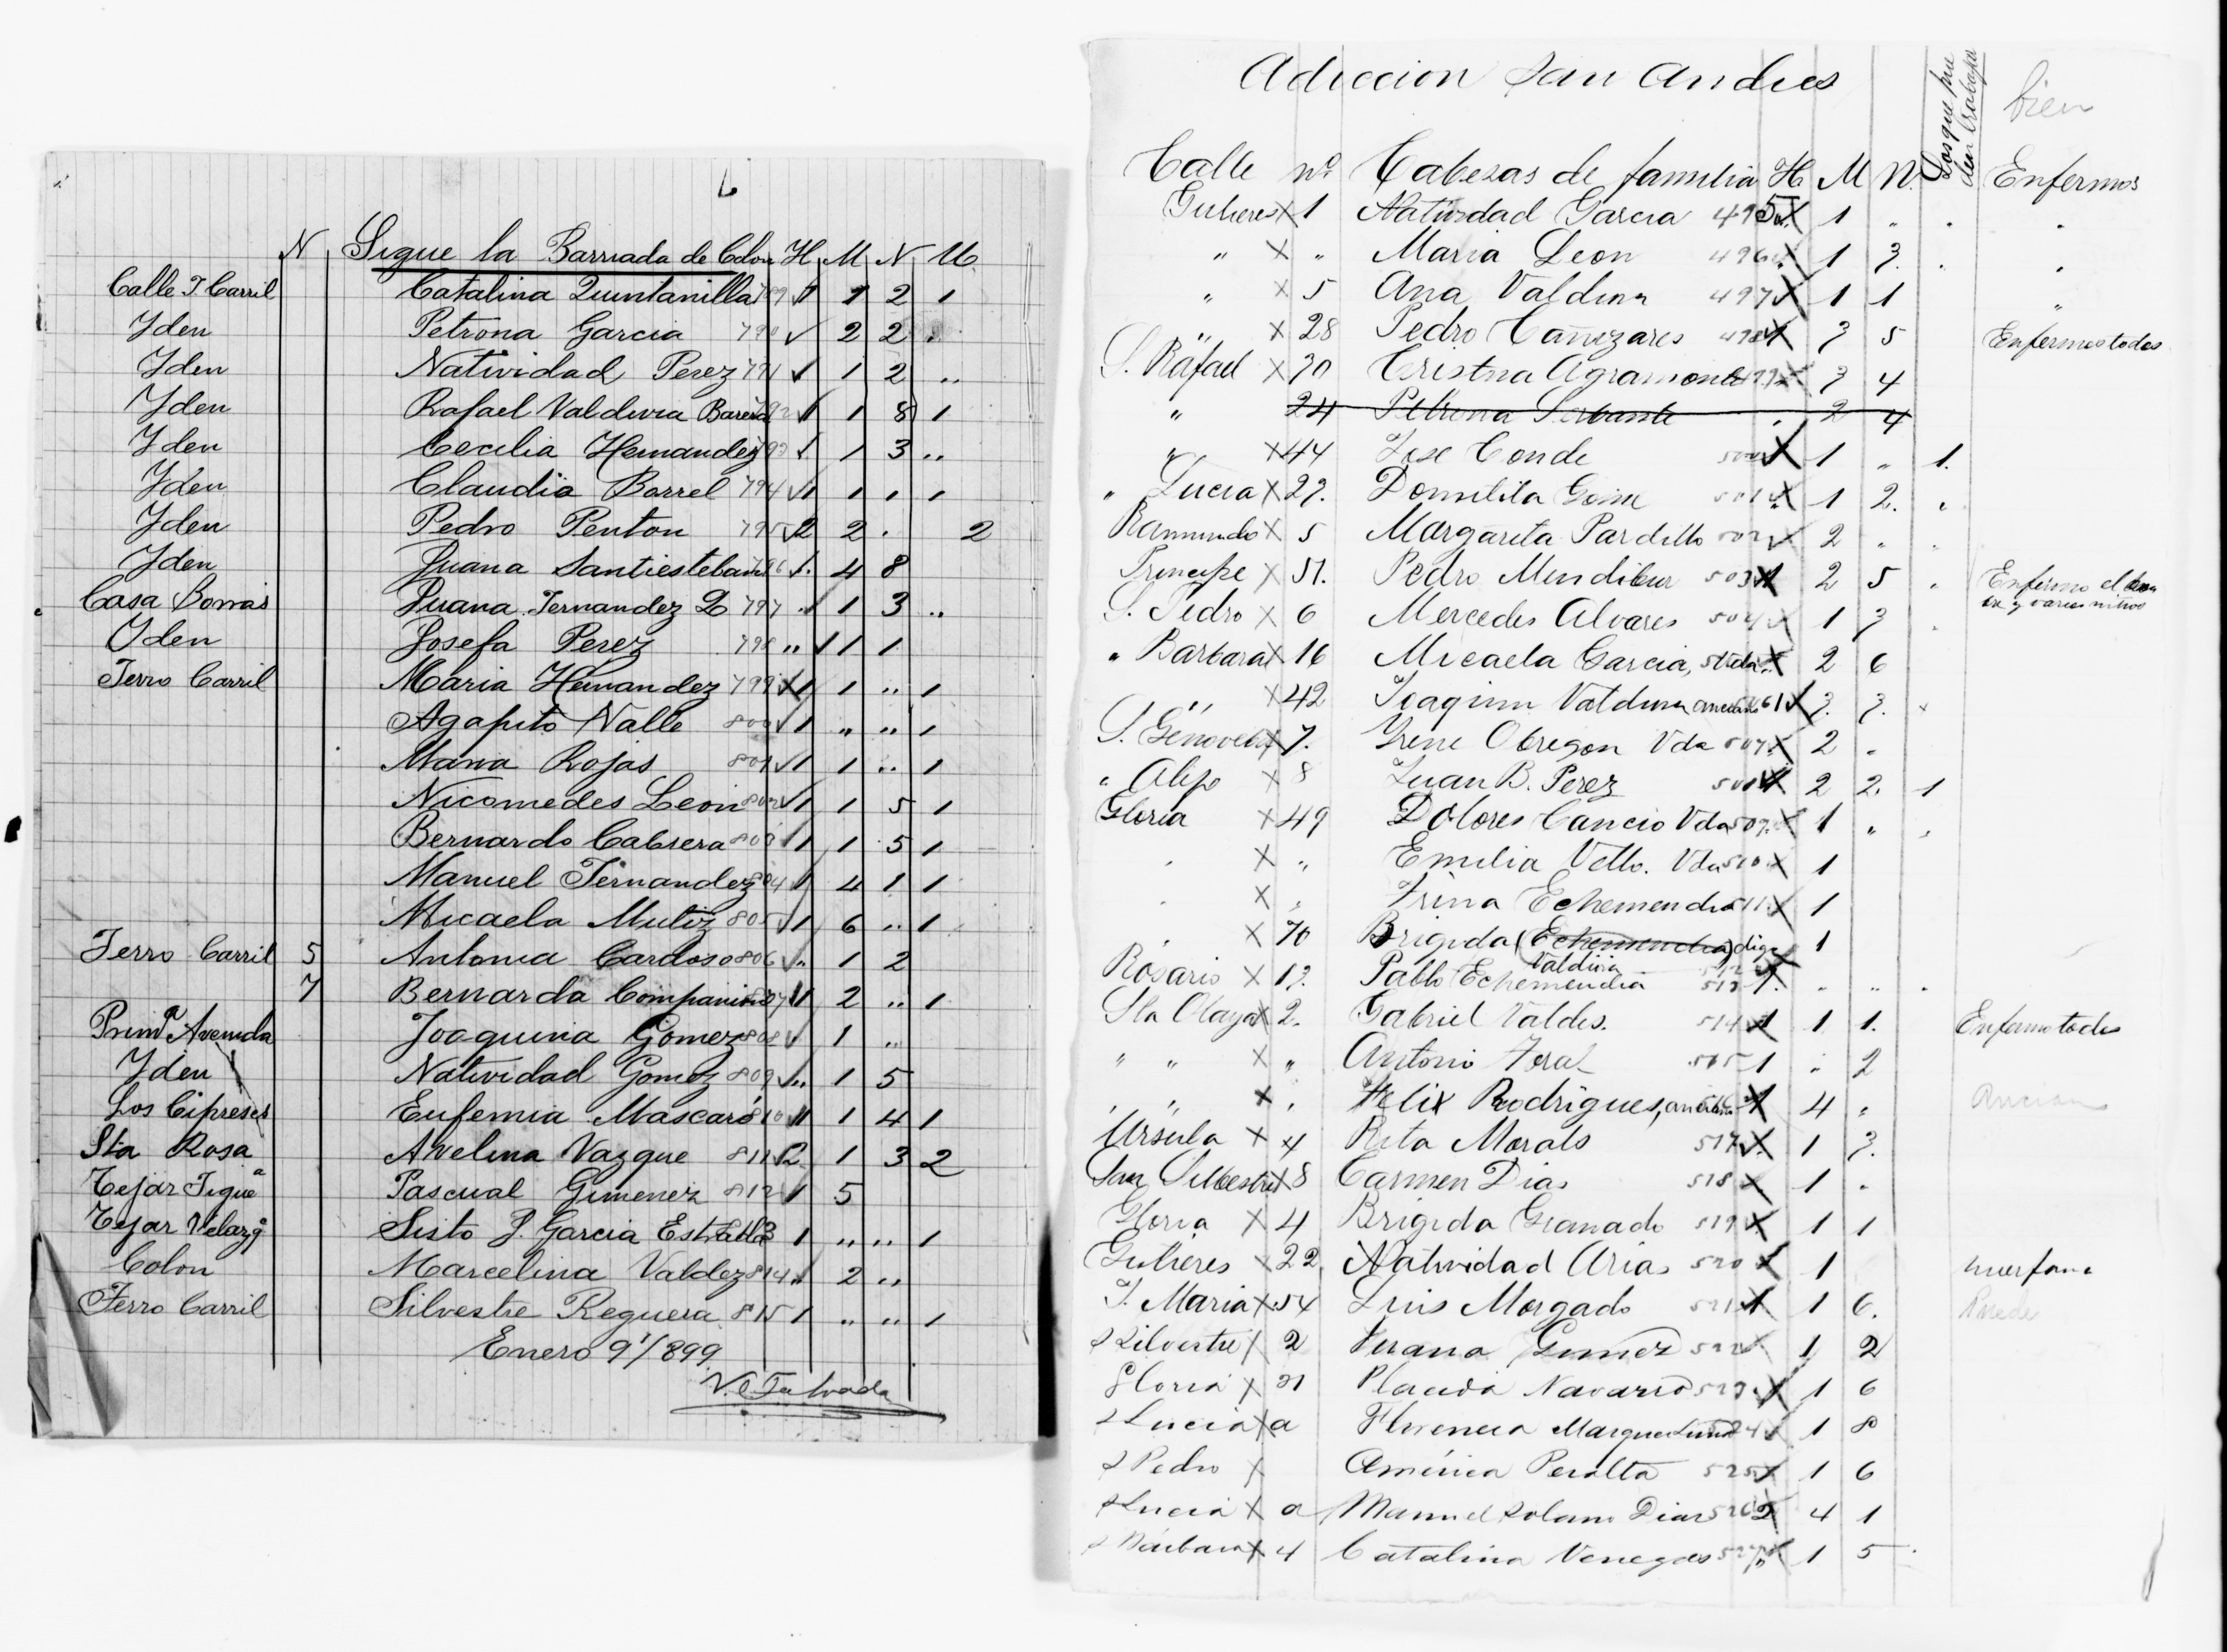 6
N Sigue la Barriada de Colon H M N U
Calle F. Carril Catalina Quintanilla 789 1 1 2 1
Yden Petrona Garcia 790 2 2 .
Yden Natividad Perez 791 1 2 ..
Yden Rafael Valdivia 792 1 1 8 1
Yden Cecilia Hernandez 793 1 3 ..
Yden Claudia Borrel 794 1 1 . 1
Yden Pedro Penton 795 2 2 . 2
Yden Juana Santiesteban 796 . 4 8
Casa Borras Juana Fernandez 797 . 1 3 ..
Yden Josefa Perez 798 .. 1 1
Ferro Carril Maria Hernandez 799 1 1 .. 1
Agapito Valle 800 1 .. .. 1
Maria Rojas 801 1 1 .. 1
Nicomedes Leon 802 1 1 5 1
Bernardo Cabrera 803 1 1 5 1
Manuel Fernandez 804 1 4 1 1
Micaela Mutiz 805 1 6 .. 1
Ferro Carril 5 Antonia Cardoso 806 .. 1 2
7 Bernarda 807 1 2 .. 1
Prima Avenida Joaquina Gomez 808 1 ..
Yden Natividad Gomez 809 .. 1 5
Los Cipreses Eufemia Mascaró 810 1 1 4 1
Sta Rosa Avelina Vazque 811 2 1 3 2
Tejar Pascual Gimenez 812 1 5
Tejar Sisto P. Garcia Estrada 1 .. .. 1
Colon Marcelina Valdez 814 .. 2 ..
Ferro Carril Silvestre Reguera 815 1 .. .. 1
Enero 9/899
Adiccion San Andres
bien
Calle nº Cabezas de familia H M N. Los que pueden trabajar Enfermos
Gutieres X 1 Natividad Garcia 495 X 1 " . .
" X " Maria Leon 496 X 1 3. . .
" X 5 Ana Valdivia 497 X 1 1 "
" X 28 Pedro Cañizares 498 1 3 5 Enfermos todos
S. Rafael X 30 Cristina Agramonte 499 X 3 4
" 24 Petrona . 2 4
" X 44 Jose Conde 500 X 1 " 1.
" Lucia X 27. Domitila 501 X 1 2. .
Raimundo X 5 Margarita Pardillo 502 2 " "
Principe X 51. Pedro Mendibur 503 1 2 5 . Enfermo el y varios niños
S. Pedro X 6 Mercedes Alvares 504 X 1 3 .
" Barbara X 16 Micaela Garcia, Vda X 2 6
" X 42 Joaquin Valdivia anciano 1 3. 3. x
S. Genoveva X 7. Yrene Obregon Vda 507 X 2 "
" Alejo X 8 Juan B. Perez 508 1 2 2. 1
Gloria X 49 Dolores Cancio Vda 509. X 1 " .
. X " Emilia Vello. Vda 510 X 1
. X " Trina Echemendia 511 X 1
. X 70 Brigida (Echemendia) digo Valdivia 512 1
Rosario X 13. Pablo Echemendia 513 1. " " .
Sta Olaya X 2. Gabriel Valdes. 514 1 1 1. Enfermo todos
" " X " Antonio 515 1 . 2
" " X " Felix Rodrigues, anciano 1 4 " Anciano
Ursula X 4 Rita Morals 517 X. 1 3.
San Silbestre X 8 Carmen Dias 518 X 1 "
Gloria X 4 Brigida Granado 519 X 1 1
Gutieres X 22. Natividad Arias 520 X 1 huerfana
S. Maria X 54 Luis Morgado 521 1 1 6. Puede
S Silvestre X 2 Juana Gomez 522 X 1 2
Gloria X 31 Placida Navarro 523 X 1 6
S Lucia X a Florencia 524 1 8
S Pedro X América Peralta 525 X 1 6
S Lucia X a Manuel Solano Dias 526 2 4 1
S Bárbara X 4 Catalina Venegas 527 " 1 5